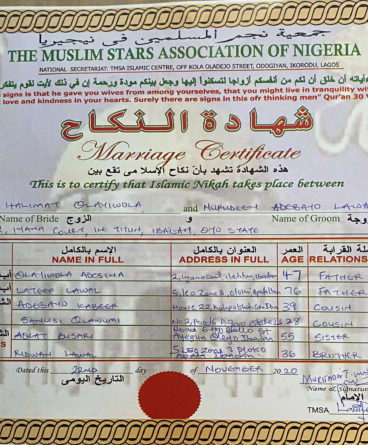 جمعية نجم المسلمين في نيجيريا
THE MUSLIM STARS ASSOCIATION OF NIGERIA
NATIONAL SECRETARIAT: TMSA ISLAMIC CENTRE, OFF KOLA OLADEJO STREET, ODOGIYAN, IKORODU, LAGOS
آياته أن خلق أن لكم من أنفسكم أزواجا لتسكنوا إليها وجعل بينكم مودة ورحمة إن في ذلك لآيت لقوم يتفكر
signs is that he gave you wives from among yourselves, that you might live in tranquility wit
love and kindness in your hearts. Surely there are signs in this of thinking men" Qur'an 30 V
شهادة النكاح
Marriage Certificate
هذه الشهادة تشهد بأن نكاح الإسلامى تقع بين
This is to certify that Islamic Nikah takes place between
HALIMAT OLAYIWOLA and NURUDEEN ADEBAYO LAWA
Name of Bride الزوج و Name of Groom وجة
COURT, ILE TITUN, IBADAN, OYO STATE
الاسم بالكامل العنوان بالكامل العمر لة القرابة
NAME IN FULL ADDRESS IN FULL AGE RELATIONS
OLAYIWOLA ADESINA 47 FATHER
LATEEF LAWAL 76 FATHER
ADEBAYO KABEER 39 COUSIN
SANUSI 28 COUSIN
BUSARI 55 SISTER
RIDWAN LAWAL 36 BROTHER
Dated this 22ND day of NOVEMBER 2020
التاريخ اليومى
Name & Signature
الإمام
TMSA